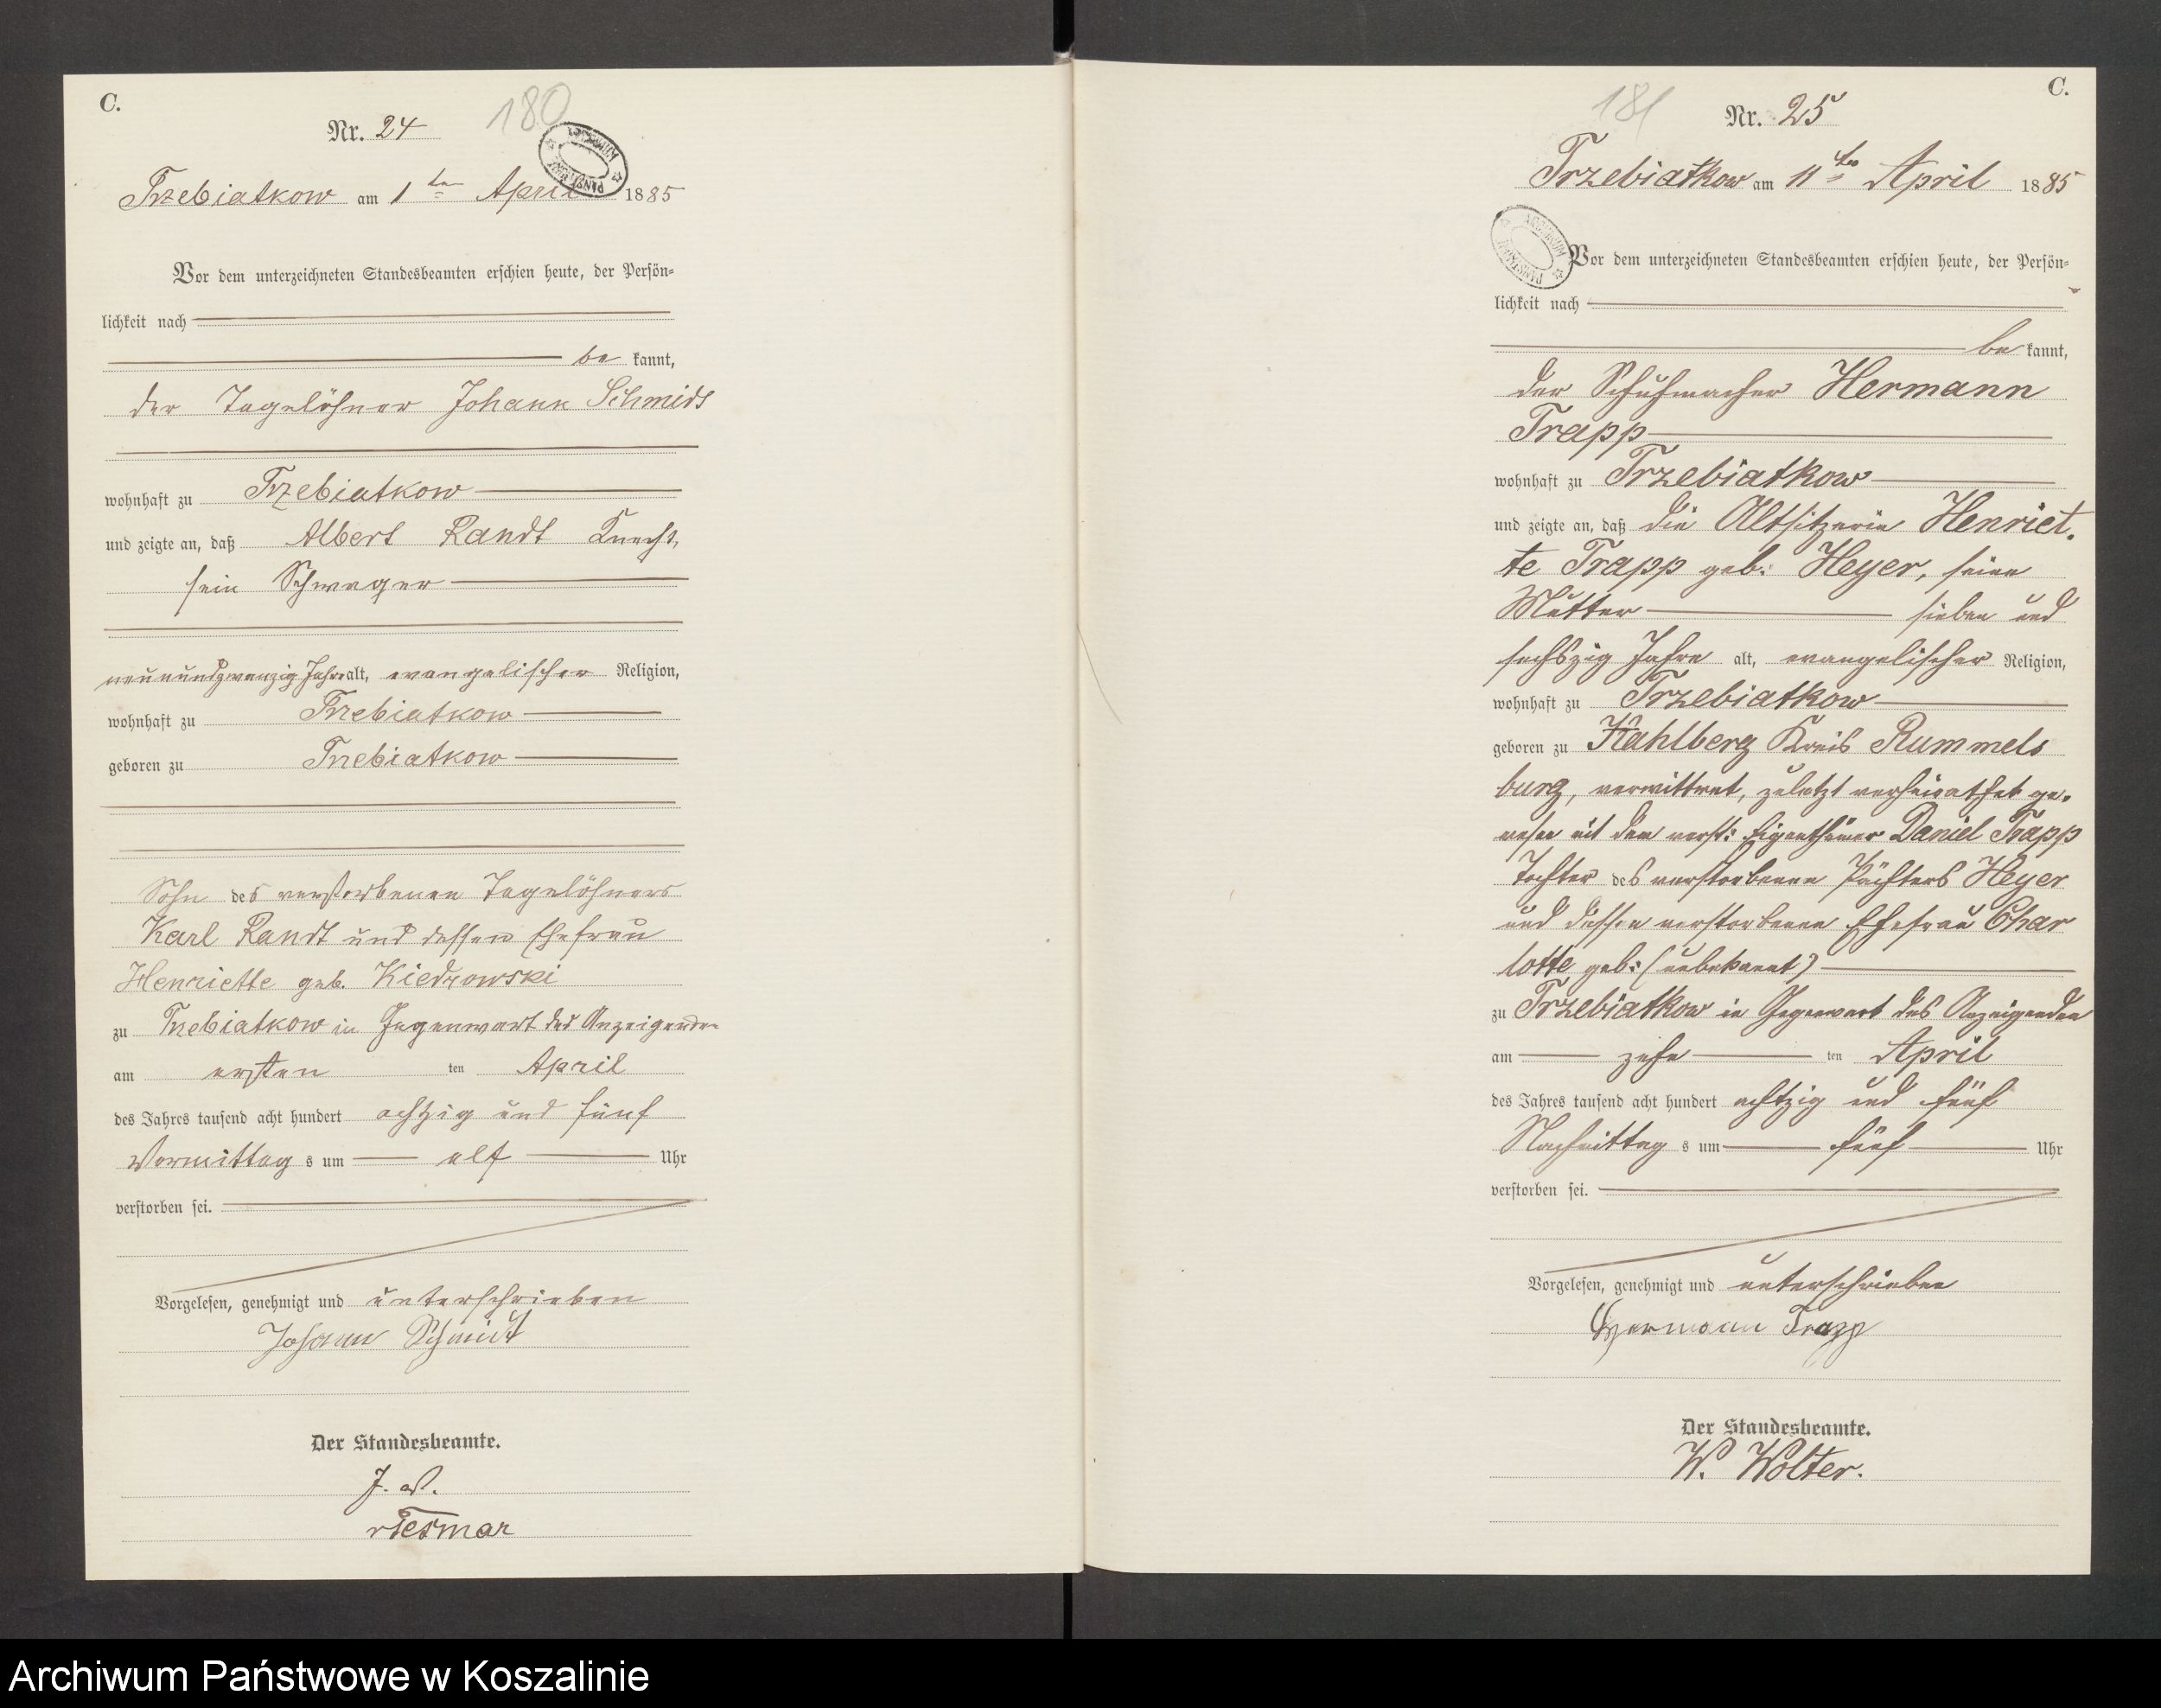 C.
Nr. 24
180
Trzebiatkow am 1ten April 1885
Vor dem unterzeichneten Standesbeamten erschien heute, der Persön-
lichkeit nach
be kannt,
der Tagelöhner Johann Schmidt
wohnhaft zu Trzebiatkow
und zeigte an, daß Albert Randt Knecht,
sein Schwager
neunundzwanzig Jahre alt, evangelischer Religion,
wohnhaft zu Trzebiatkow
geboren zu Trzebiatkow
Sohn des verstorbenen Tagelöhners
Karl Randt und dessen Ehefrau
Henriette geb. Kiedrowski
zu Trzebiatkow in Gegenwart des Anzeigenden
am ersten ten April
des Jahres tausend acht hundert achtzig und fünf
Vormittag s um elf Uhr
verstorben sei.
Vorgelesen, genehmigt und unterschrieben
Johann Schmidt
Der Standesbeamte.
J. V.
Tesmar
C.
181
Nr. 25
Trzebiatkow am 11ten April 1885
Vor dem unterzeichneten Standesbeamten erschien heute, der Persön-
lichkeit nach
be kannt,
der Schuhmacher Hermann
Trapp
wohnhaft zu Trzebiatkow
und zeigte an, daß die Altsitzerin Henriet-
te Trapp geb: Heyer, seine
Mutter sieben und
sechszig Jahre alt, evangelischer Religion,
wohnhaft zu Trzebiatkow
geboren zu Kahlberg Kreis Rummels
burg, verwittwet, zuletzt verheirathet ge-
wesen mit dem verst: Eigenthümer Daniel Trapp
Tochter des verstorbenen Pächters Heyer
und dessen verstorbenen Ehefrau Char
lotte geb: (unbekannt)
zu Trzebiatkow in Gegenwart des Anzeigenden
am zehn ten April
des Jahres tausend acht hundert achtzig und fünf
Nachmittag s um fünf Uhr
verstorben sei.
Vorgelesen, genehmigt und unterschrieben
Hermann Trapp
Der Standesbeamte.
W. Wolter.
Archiwum Państwowe w Koszalinie